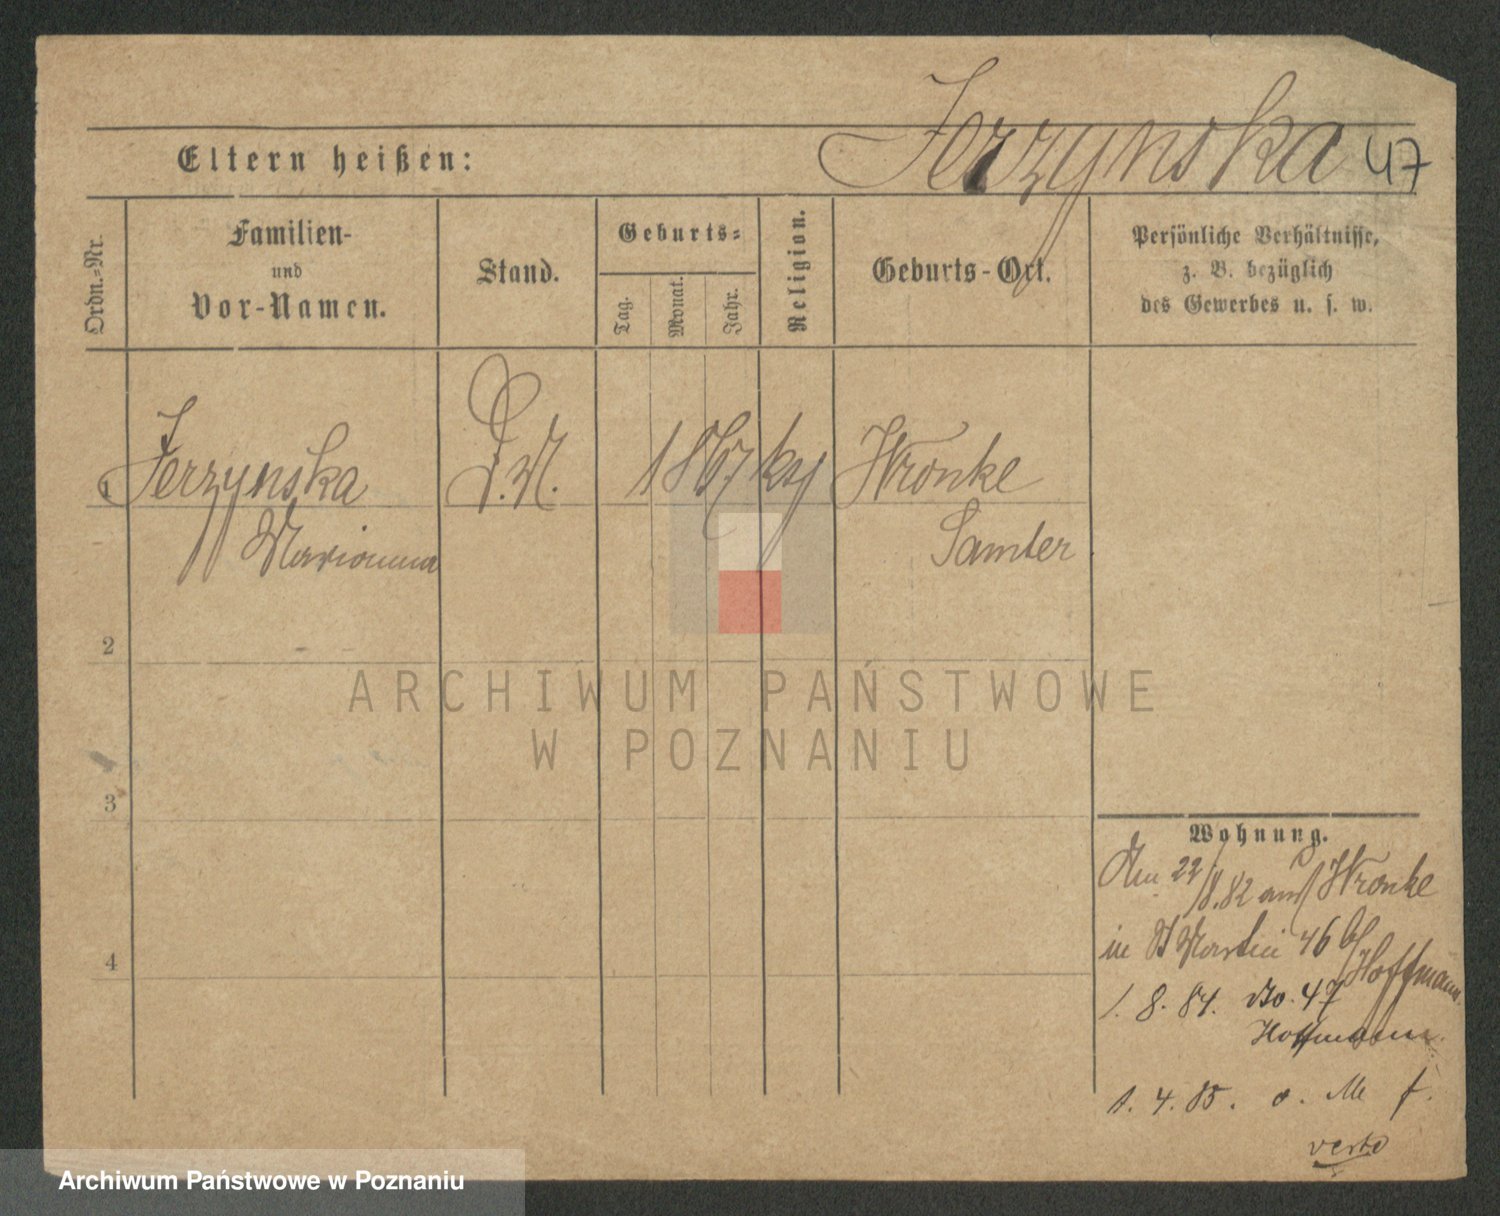 Jerzynska 47
Eltern heißen:
Ordn.=Nr.
Familien-
und
Vor-Namen.
Stand.
Geburts=
Tag.
Monat.
Jahr.
Religion.
Geburts-Ort.
Persönliche Verhältnisse,
z. B. bezüglich
des Gewerbes u. s. w.
1 Jerzynska D.M. 1867 ky Wronke
Marianna Samter
2
3
4
ARCHIWUM PAŃSTWOWE
W POZNANIU
Wohnung.
22/8.82 aus Wronke
in St Martin 46 b/ Hoffmann
1. 8. 84. do. 47
Hoffmann
1. 4. 85. o. M f.
verte
Archiwum Państwowe w Poznaniu